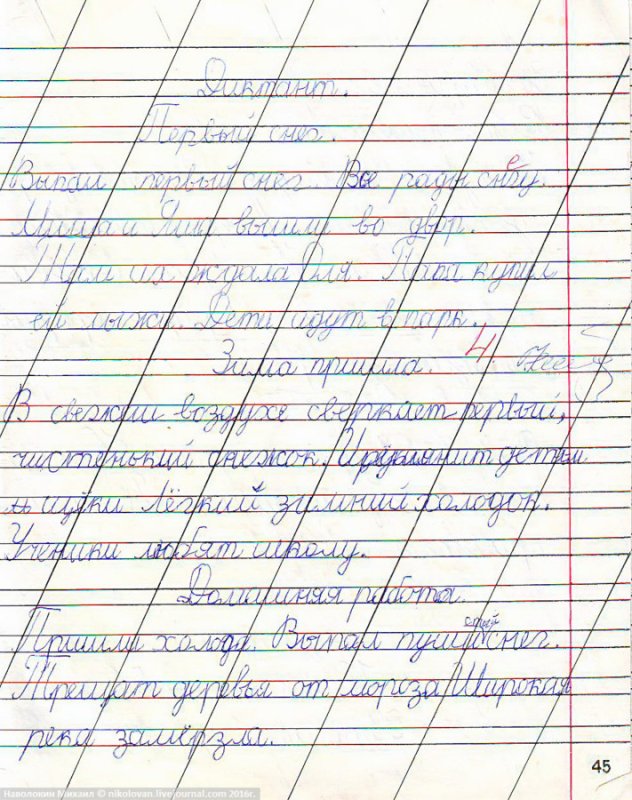 Диктант.
Первый снег.
Выпал первый снег. Все рады снегу.
Миша и Яша вышли во двор.
Там их ждала Оля. Папа купил
ей лыжи. Дети идут в парк.
Зима пришла. 4
В свежий воздухе сверкает первый,
чистенький снежок. И румянит детям
щёки лёгкий зимний холодок.
Ученики любят школу.
Домашняя работа.
Пришли холода. Выпал пушистый снег.
Трещат деревья от мороза. Широкая
река замёрзла.
45
Наволокин Михаил © nikolovan.livejournal.com 2016г.